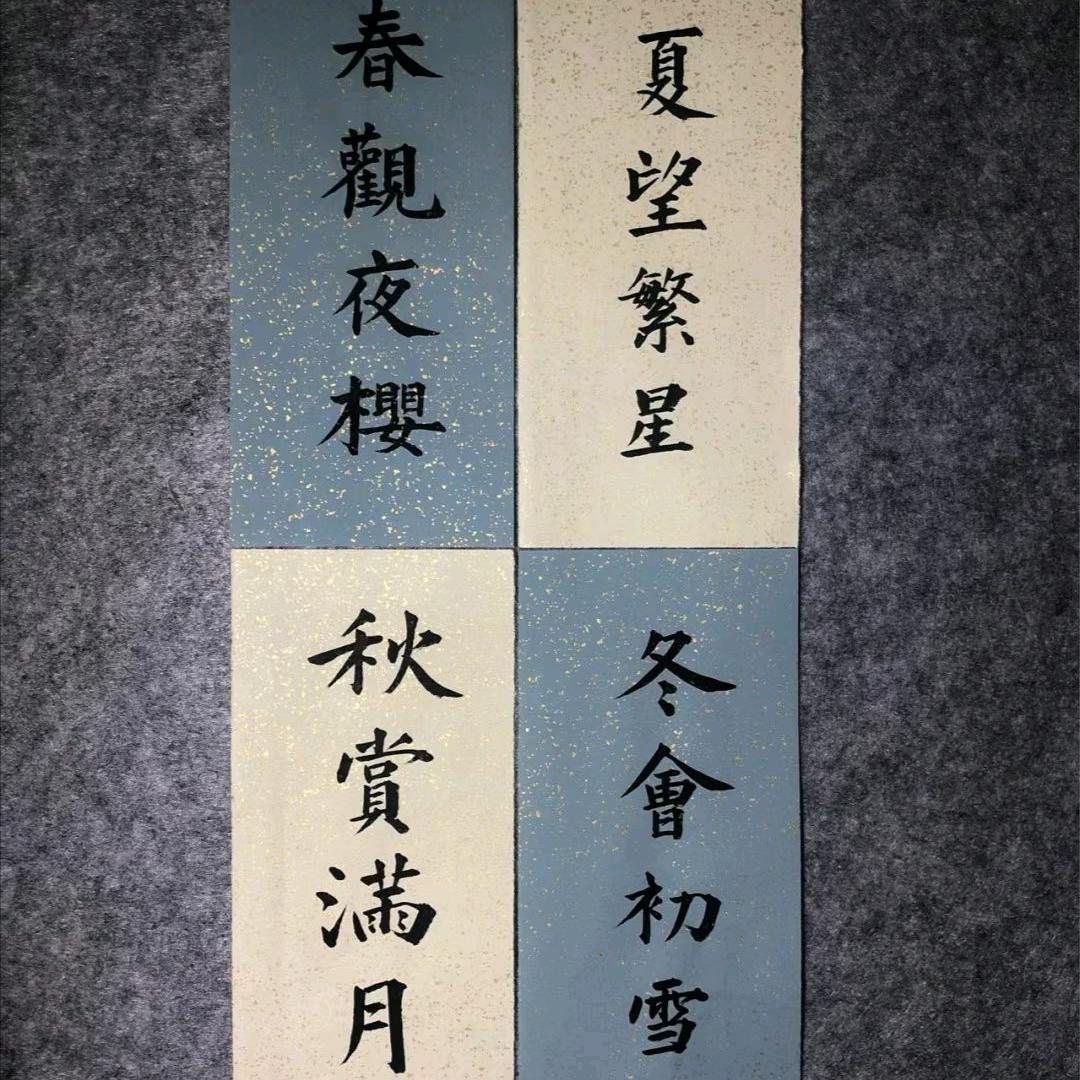 春觀夜櫻
夏望繁星
秋賞滿月
冬會初雪